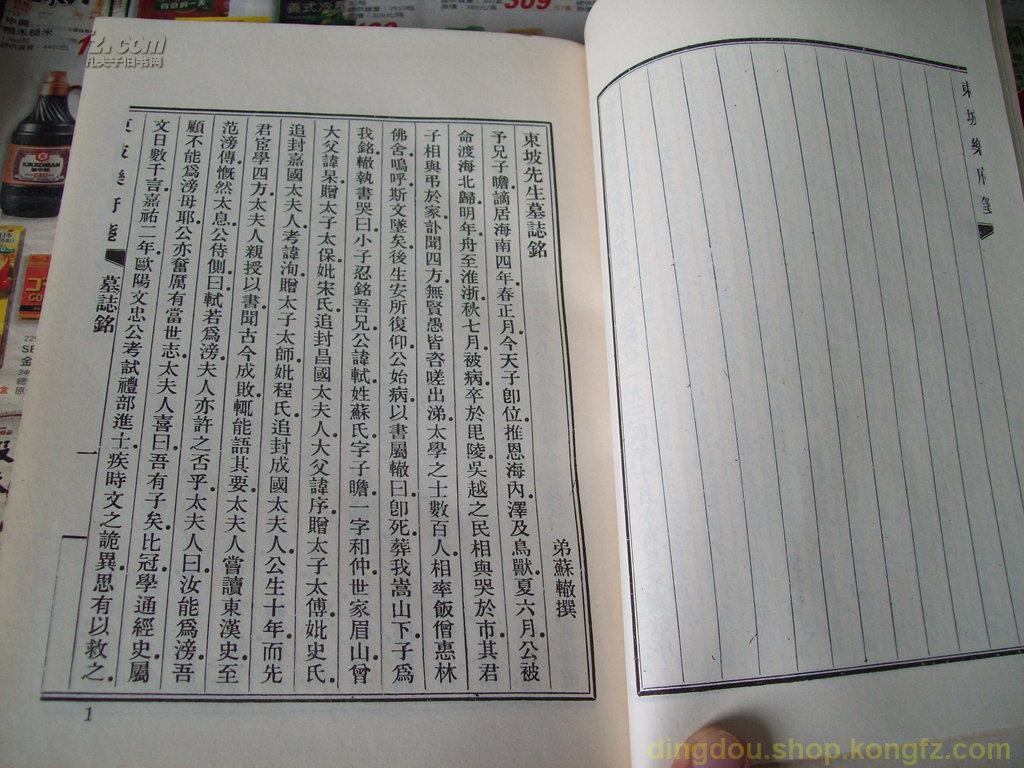 東坡先生墓誌銘
弟蘇轍撰
予兄子瞻謫居海南四年春正月今天子卽位推恩海內澤及鳥獸夏六月公被
命渡海北歸明年舟至淮浙秋七月被病卒於毘陵吳越之民相與哭於市其君
子相與弔於家訃聞四方無賢愚皆咨嗟出涕太學之士數百人相率飯僧惠林
佛舍嗚呼斯文墜矣後生安所復仰公始病以書屬轍曰卽死葬我嵩山下子爲
我銘轍執書哭曰小子忍銘吾兄公諱軾姓蘇氏字子瞻一字和仲世家眉山曾
大父諱杲贈太子太保妣宋氏追封昌國太夫人大父諱序贈太子太傅妣史氏
追封嘉國太夫人考諱洵贈太子太師妣程氏追封成國太夫人公生十年而先
君宦學四方太夫人親授以書聞古今成敗輒能語其要太夫人嘗讀東漢史至
范滂傳慨然太息公侍側曰軾若爲滂夫人亦許之否乎太夫人曰汝能爲滂吾
顧不能爲滂母耶公亦奮厲有當世志太夫人喜曰吾有子矣比冠學通經史屬
文日數千言嘉祐二年歐陽文忠公考試禮部進士疾時文之詭異思有以救之
墓誌銘
一
1
KIKKOMAN
309
孔夫子旧书网
dingdou.shop.kongfz.com